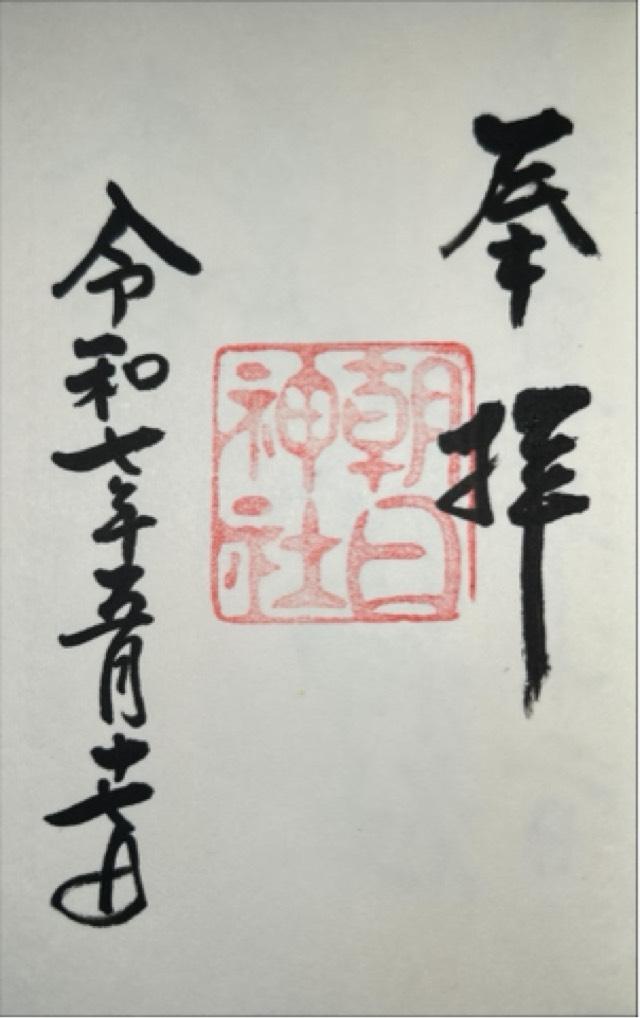 奉拝
朝日
神社
令和七年五月十七日